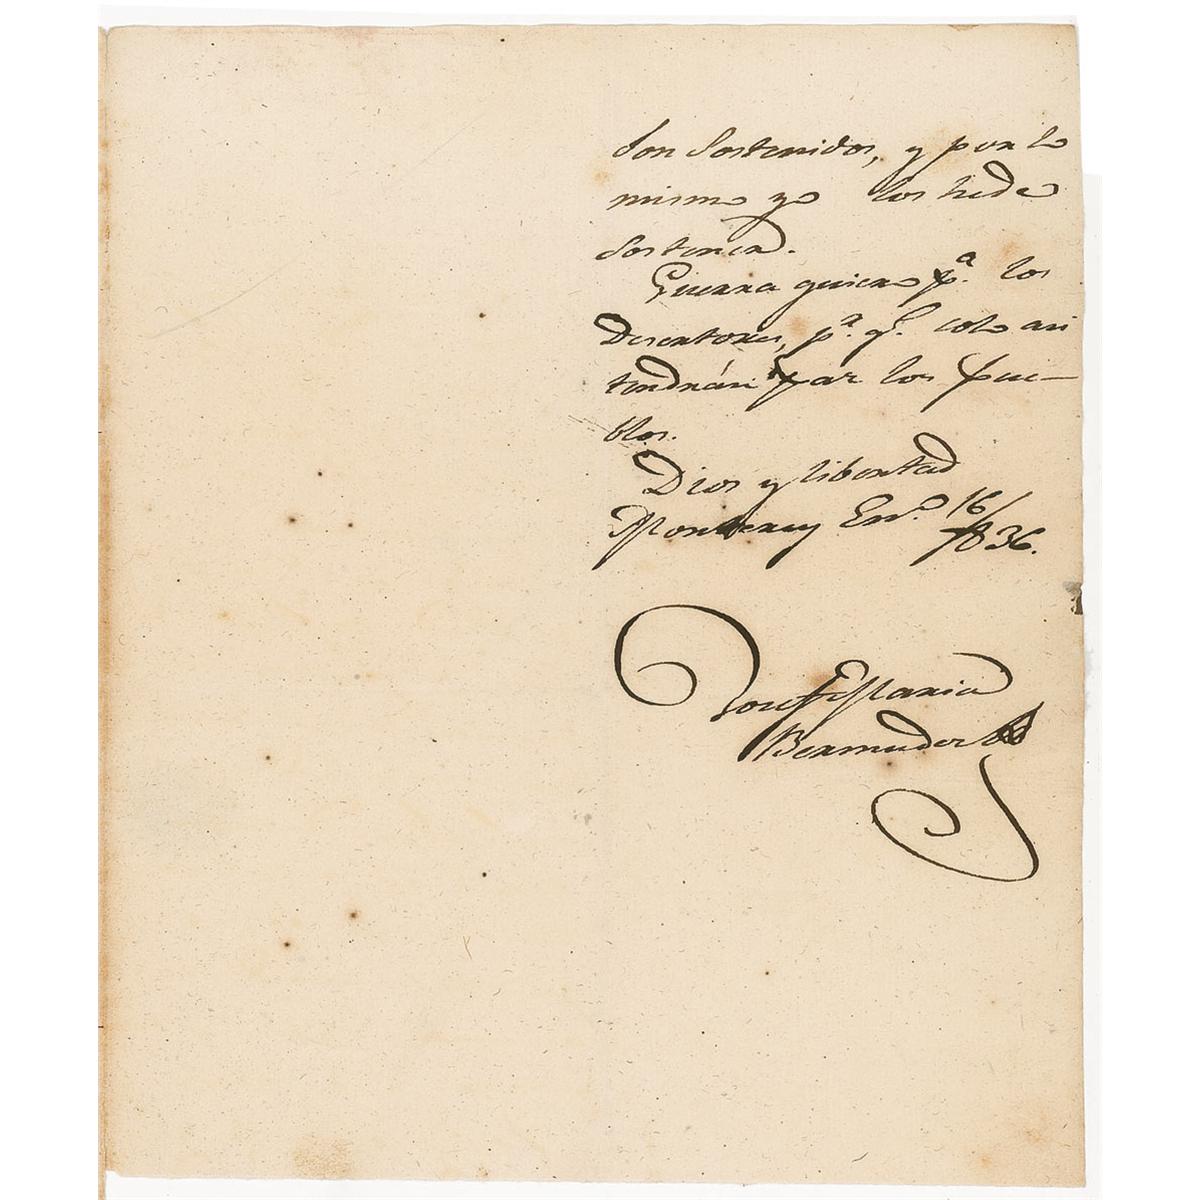 son sostenidos, y por lo
mismo yo los hede
sostener.
Guerra quiero p.ª los
Desertores, p.ª q.e solo asi
tendrán paz los pue-
blos.
Dios y libertad
Monterrey En.o 16/836.
José Maria
Bermudes